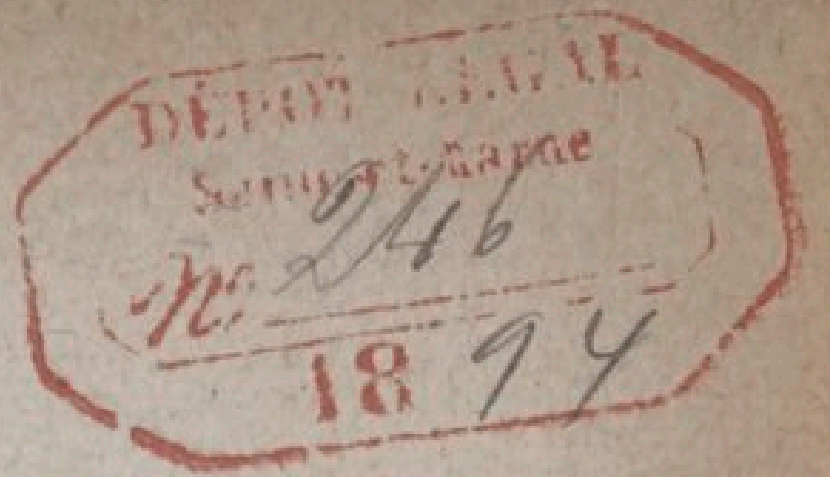 DÉPOT LÉGAL
Seine-et-Marne
No 246
1894